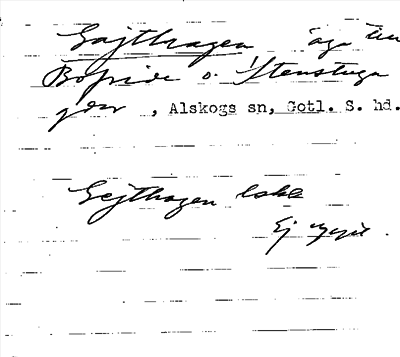 Gajthagen äga till
Bofride o. Stenstuga
gdar, Alskogs sn, Gotl. S. hd.
Gejthagen lokal
Ej